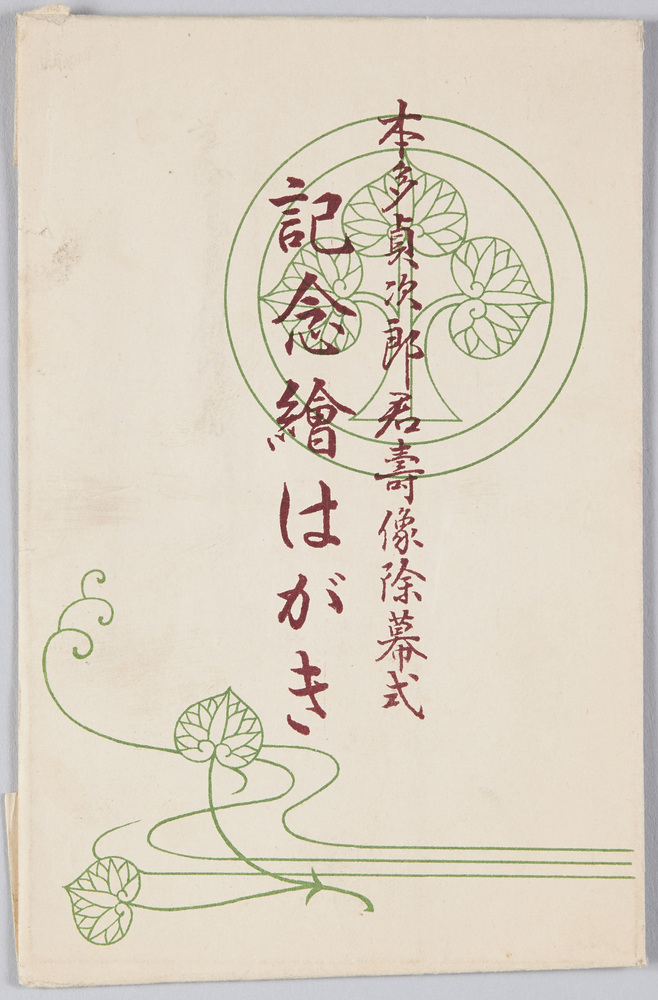 本多貞次郎君壽像除幕式
記念繪はがき